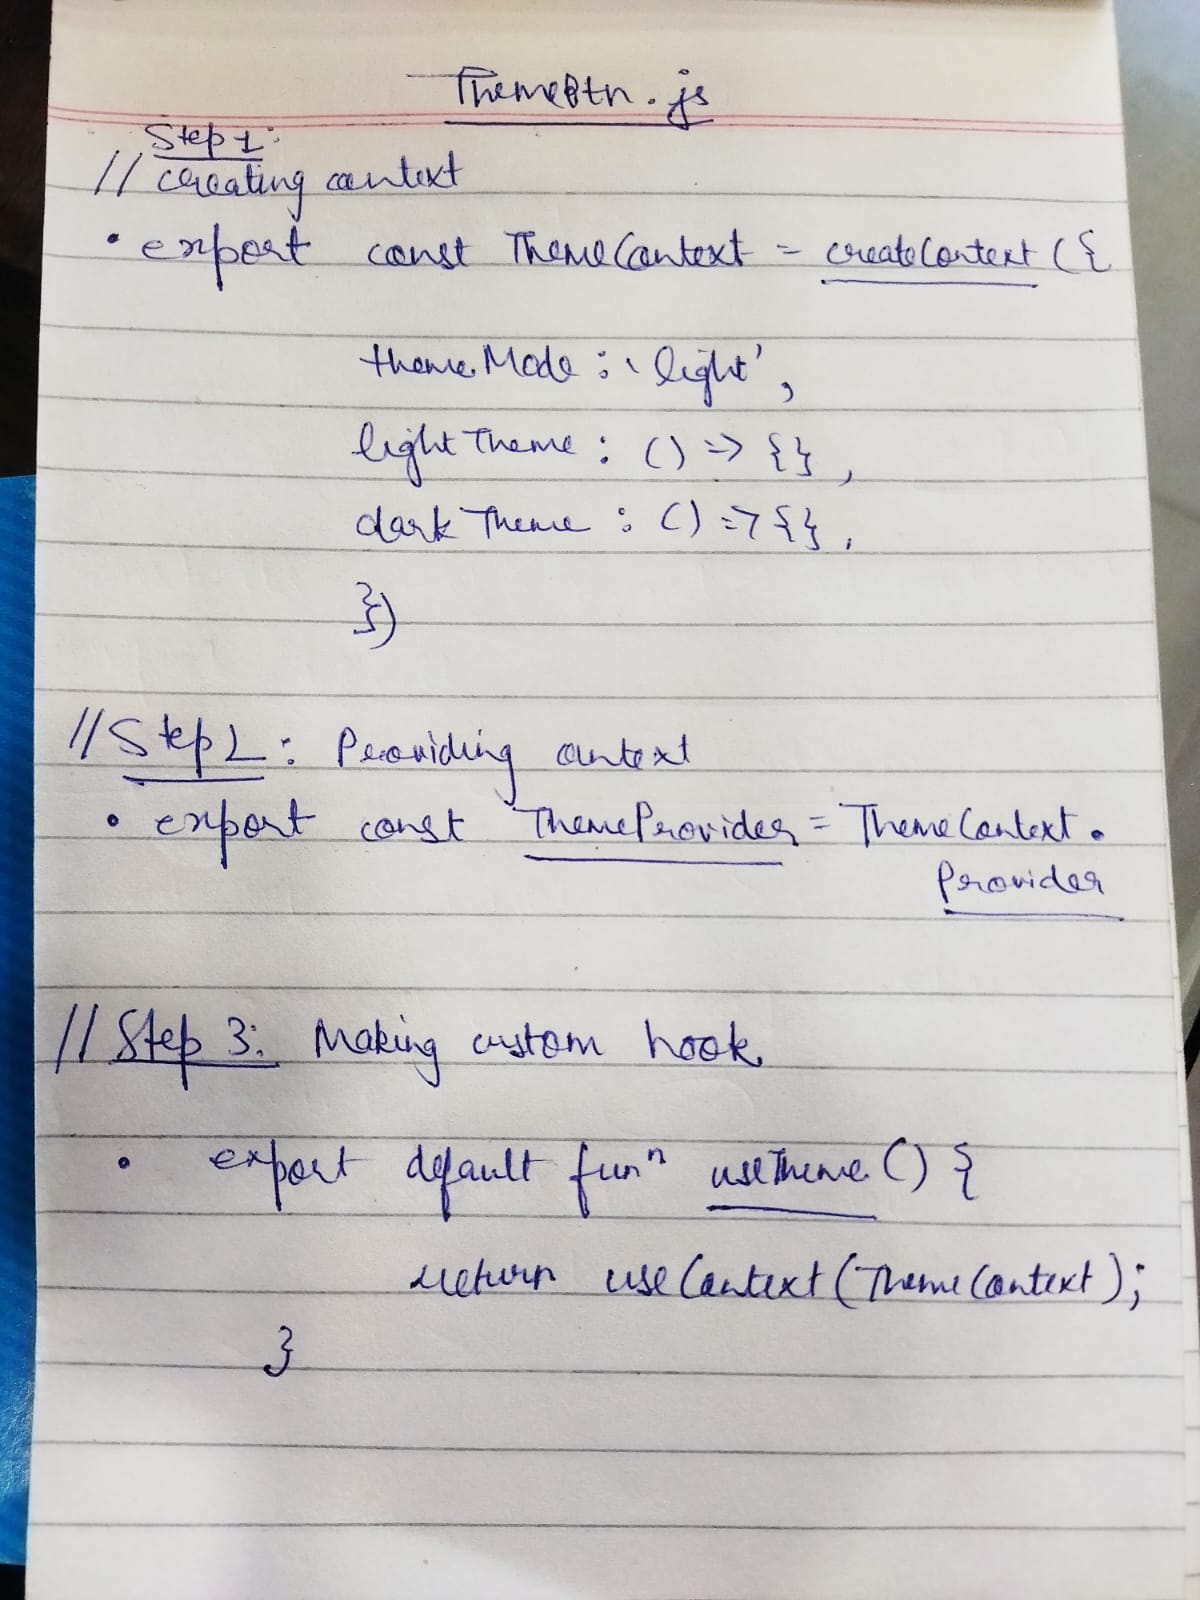 ThemeBtn.js
Step 1:
// creating context
• export const ThemeContext = createContext({
themeMode : 'light',
lightTheme : () => {},
darkTheme : () => {},
})
// Step 2: Providing context
• export const ThemeProvider = ThemeContext.
Provider
// Step 3: Making custom hook
• export default funⁿ useTheme() {
return useContext(ThemeContext);
}